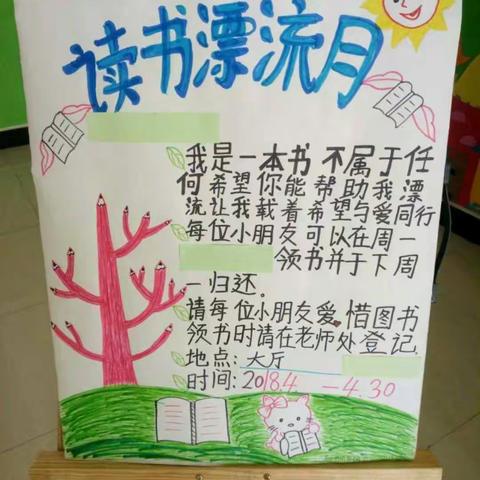 读书漂流月
我是一本书不属于任
何希望你能帮助我漂
流让我载着希望与爱同行
每位小朋友可以在周一
领书并于下周
一归还。
请每位小朋友爱惜图书
领书时请在老师处登记.
地点:大厅
时间:20184 —4.30